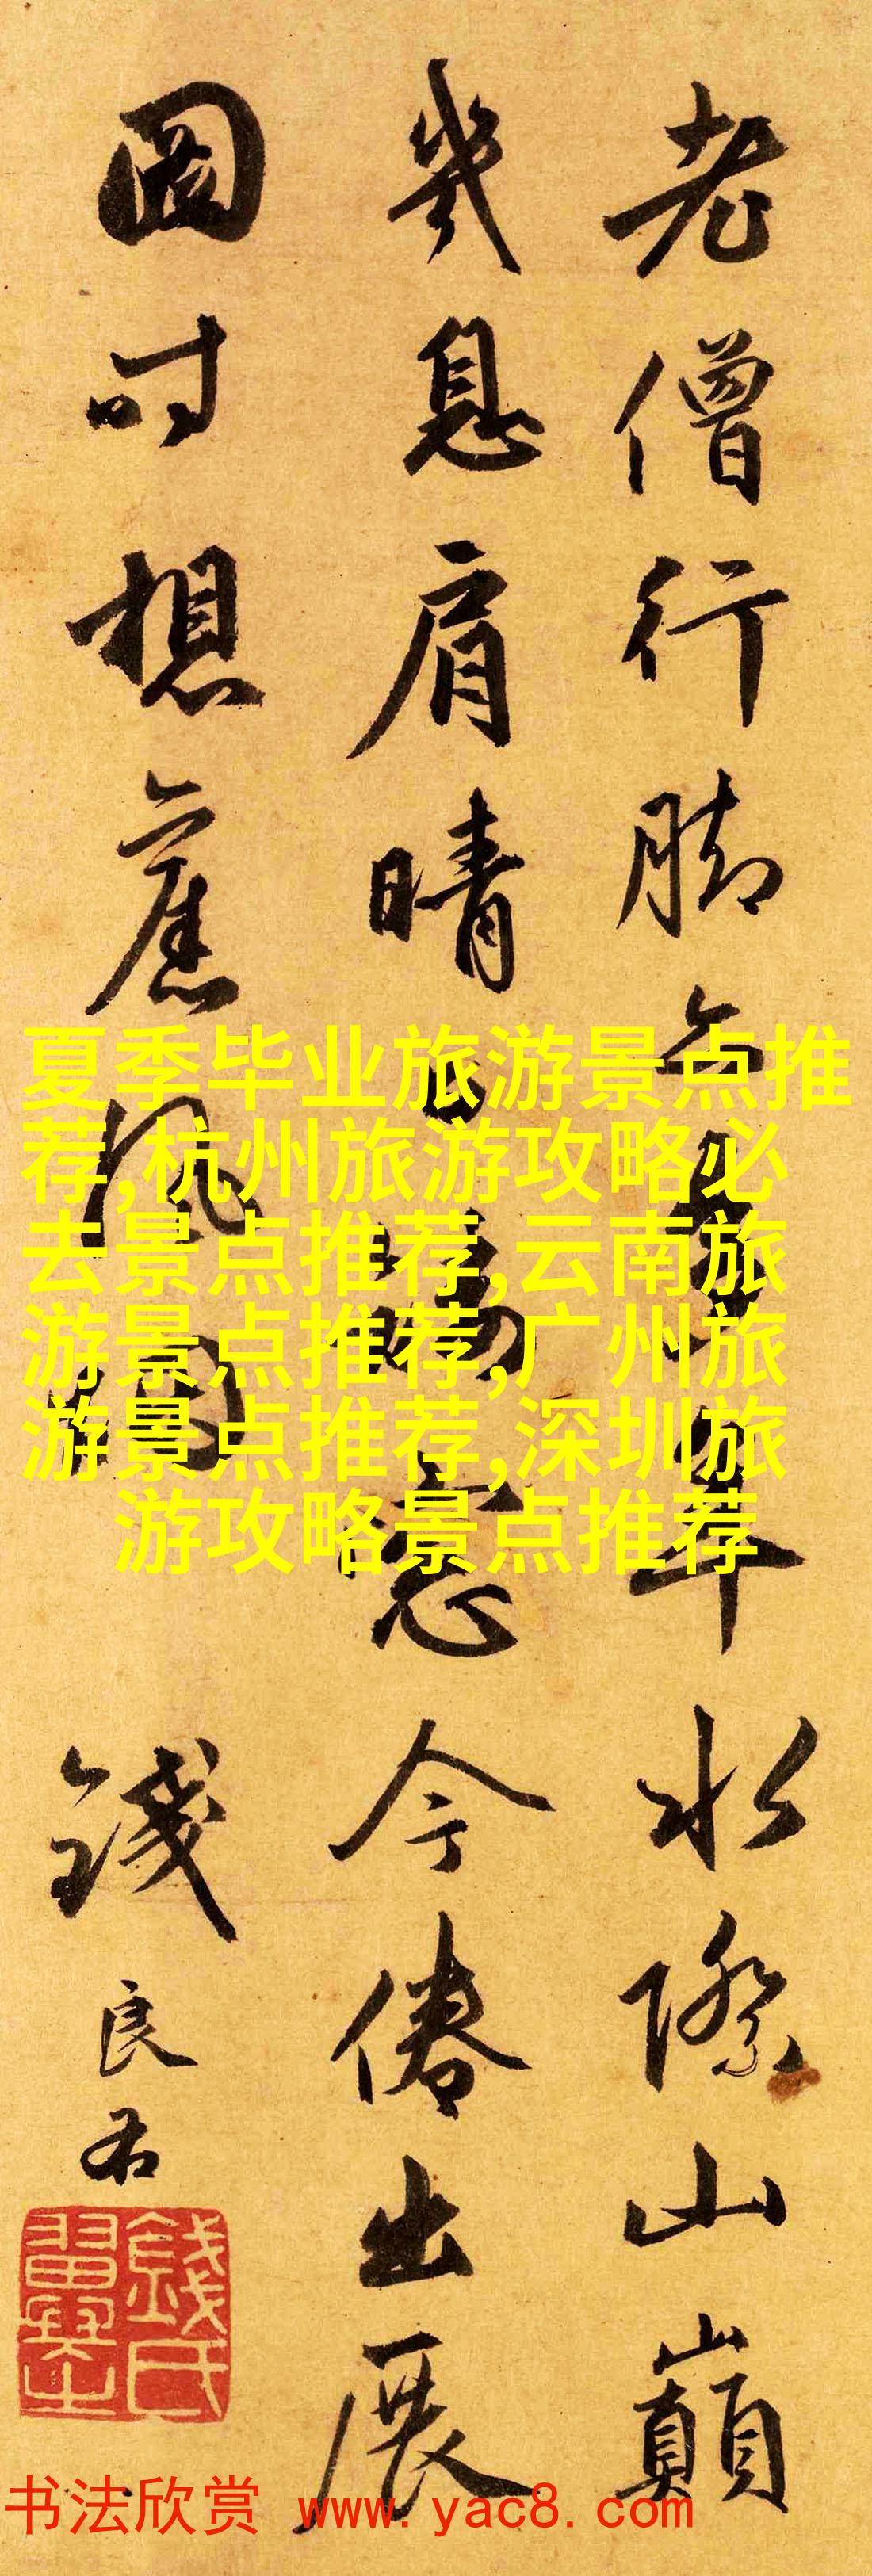 老僧行脚年水際山巔
幾息肩晴日窓今倦出展
圖时想舊風烟
錢良右
錢氏翼之
夏季毕业旅游景点推
荐,杭州旅游攻略必
去景点推荐,云南旅
游景点推荐,广州旅
游景点推荐,深圳旅
游攻略景点推荐
书法欣赏 www.yac8.com